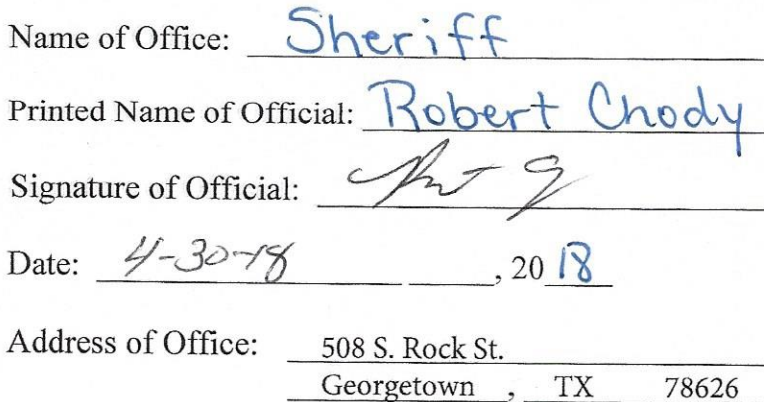 Name of Office: Sheriff
Printed Name of Official: Robert Chody
Signature of Official:
Date: 4-30-18 , 20 18
Address of Office: 508 S. Rock St.
Georgetown , TX 78626